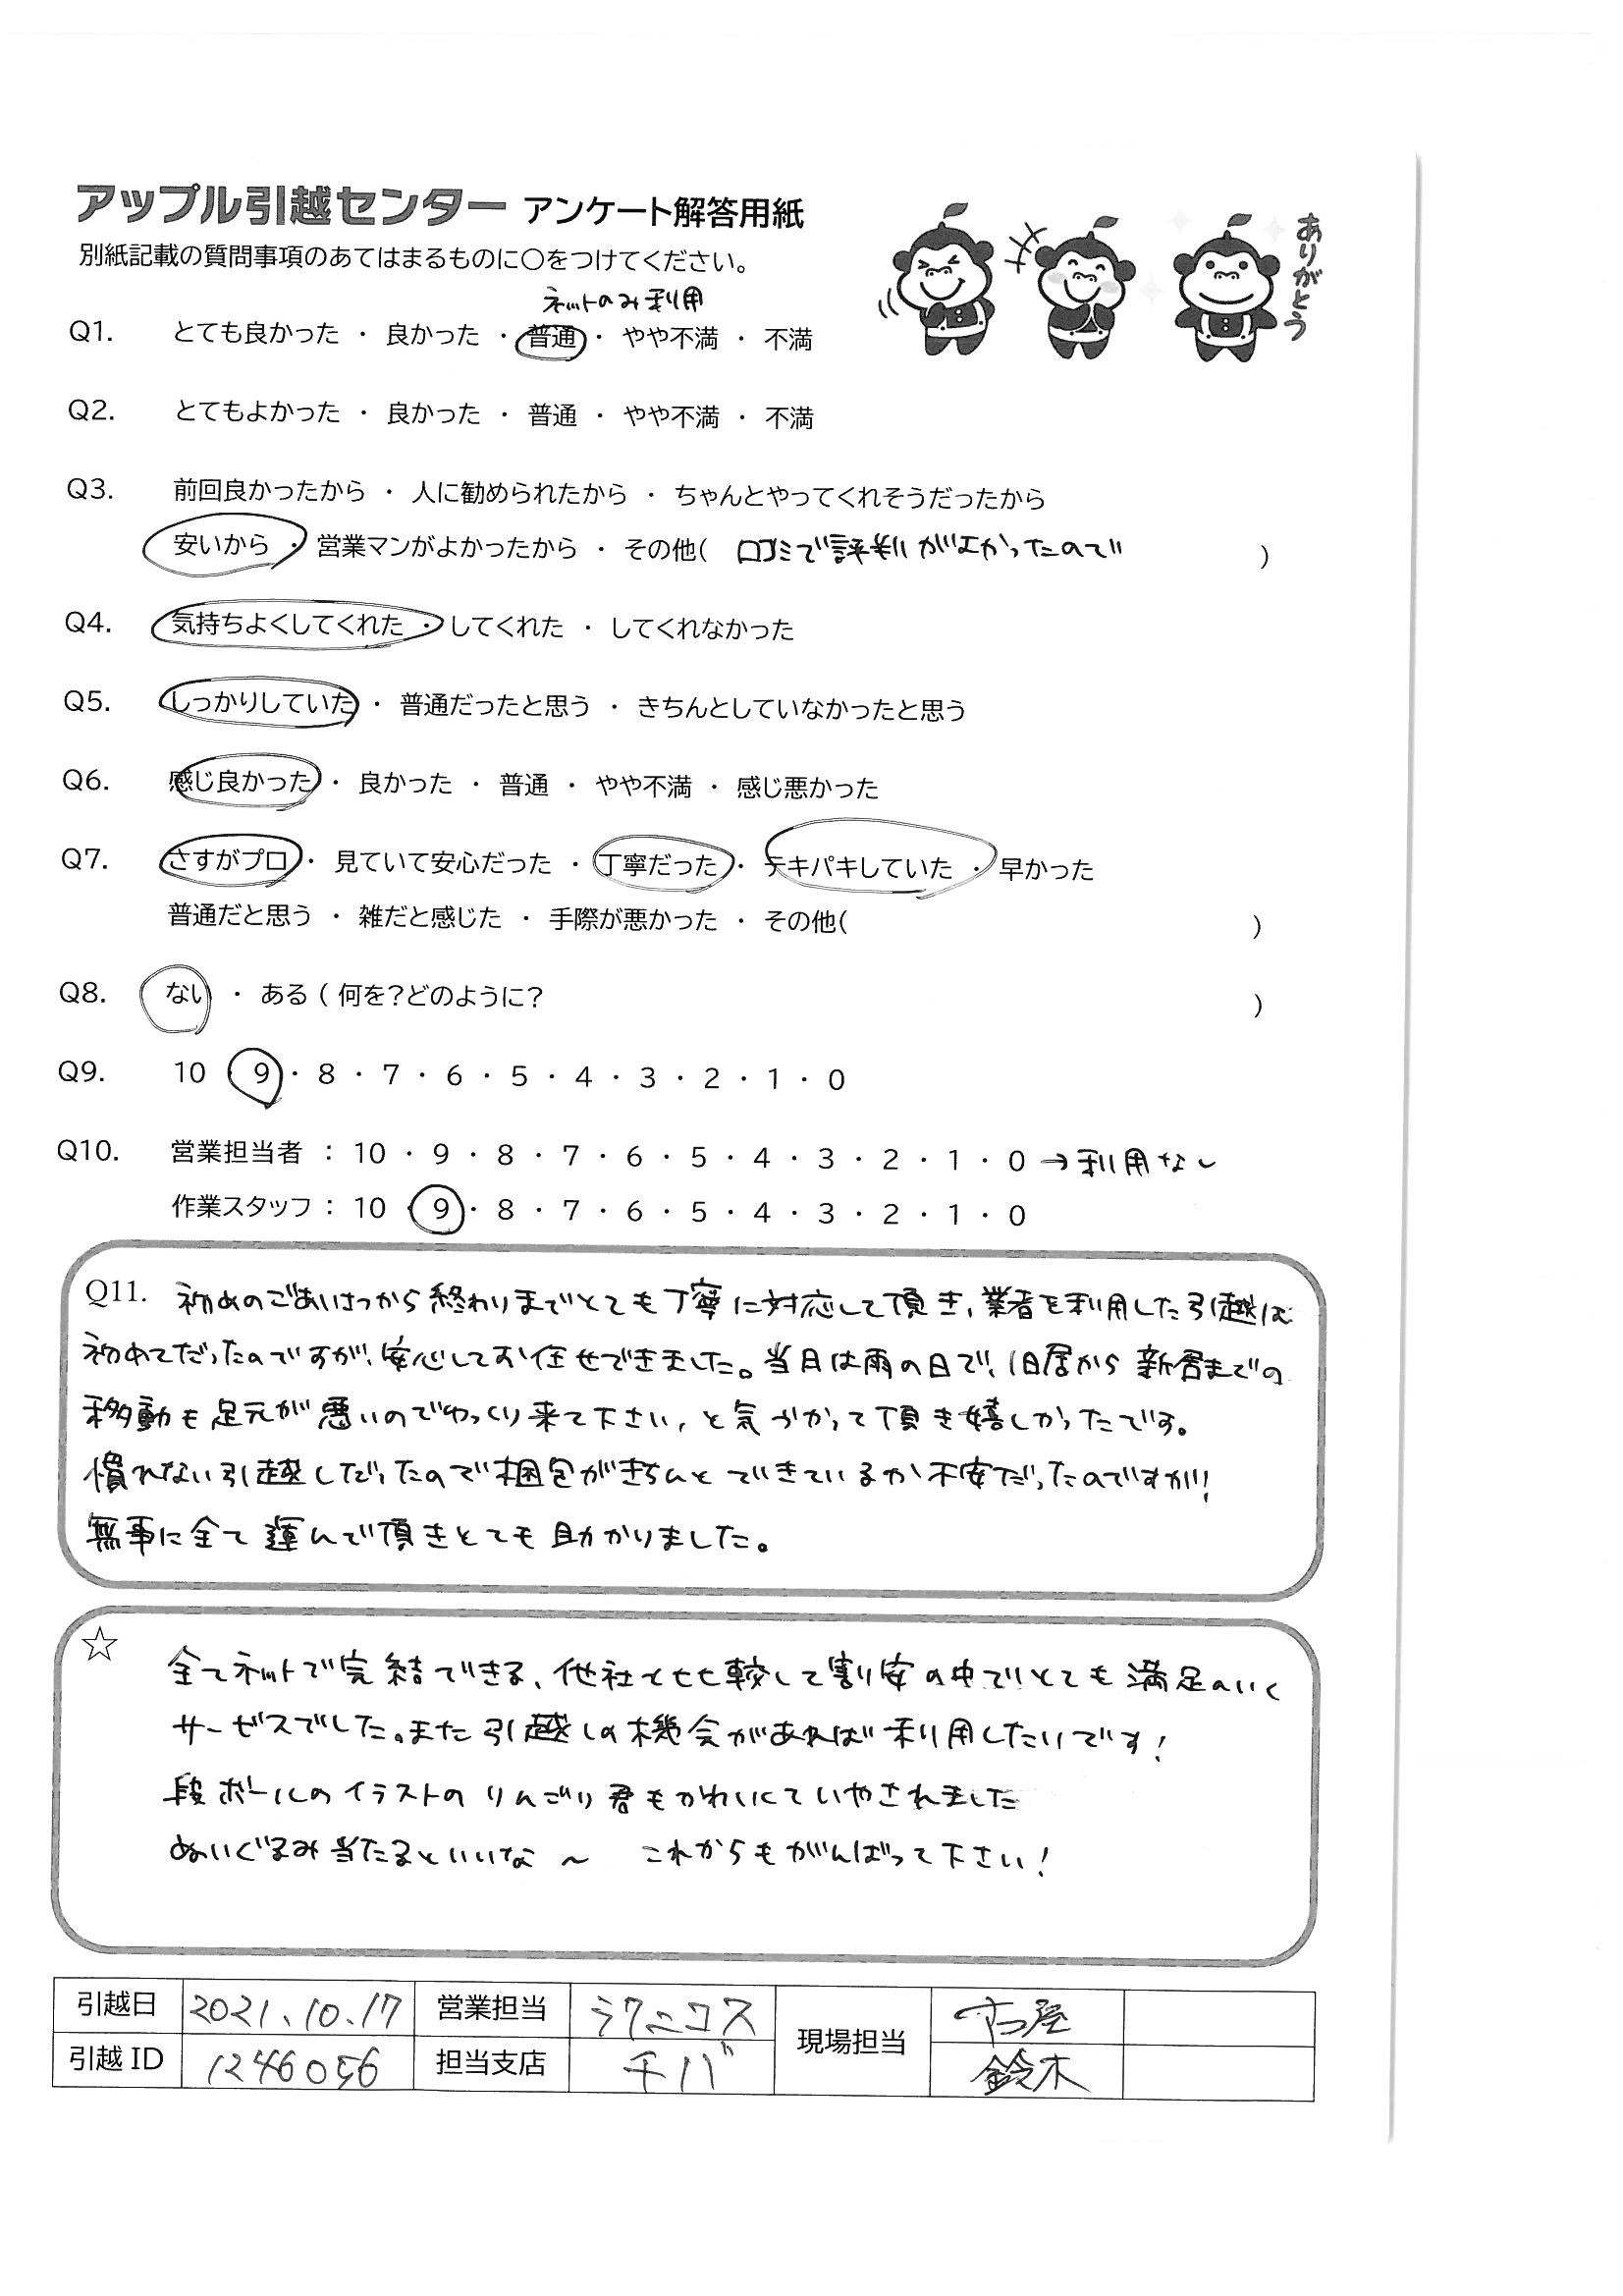 アップル引越センター アンケート解答用紙
ありがとう
別紙記載の質問事項のあてはまるものに○をつけてください。
ネットのみ利用
Q1. とても良かった ・ 良かった ・ 普通 ・ やや不満 ・ 不満
Q2. とてもよかった ・ 良かった ・ 普通 ・ やや不満 ・ 不満
Q3. 前回良かったから ・ 人に勧められたから ・ ちゃんとやってくれそうだったから
安いから ・ 営業マンがよかったから ・ その他( 口コミで評判がよかったので )
Q4. 気持ちよくしてくれた ・ してくれた ・ してくれなかった
Q5. しっかりしていた ・ 普通だったと思う ・ きちんとしていなかったと思う
Q6. 感じ良かった ・ 良かった ・ 普通 ・ やや不満 ・ 感じ悪かった
Q7. さすがプロ ・ 見ていて安心だった ・ 丁寧だった ・ テキパキしていた ・ 早かった
普通だと思う ・ 雑だと感じた ・ 手際が悪かった ・ その他( )
Q8. ない ・ ある ( 何を?どのように? )
Q9. 10 ・ 9 ・ 8 ・ 7 ・ 6 ・ 5 ・ 4 ・ 3 ・ 2 ・ 1 ・ 0
Q10. 営業担当者 : 10 ・ 9 ・ 8 ・ 7 ・ 6 ・ 5 ・ 4 ・ 3 ・ 2 ・ 1 ・ 0 →利用なし
作業スタッフ : 10 ・ 9 ・ 8 ・ 7 ・ 6 ・ 5 ・ 4 ・ 3 ・ 2 ・ 1 ・ 0
Q11. 初めのごあいさつから終わりまでとても丁寧に対応して頂き、業者を利用した引越は
初めてだったのですが、安心してお任せできました。当日は雨の日で、旧居から新居までの
移動も足元が悪いのでゆっくり来て下さい、と気づかって頂き嬉しかったです。
慣れない引越しだったので梱包がきちんとできているか不安だったのですが、
無事に全て運んで頂きとても助かりました。
☆ 全てネットで完結できる、他社と比較して割安の中でとても満足のいく
サービスでした。また引越しの機会があれば利用したいです!
段ボールのイラストのりんごり君もかわいくていやされました
ぬいぐるみ当たるといいな〜 これからもがんばって下さい!
引越日 2021.10.17 営業担当 ラクニコス 現場担当
引越ID 1246056 担当支店 チバ 鈴木